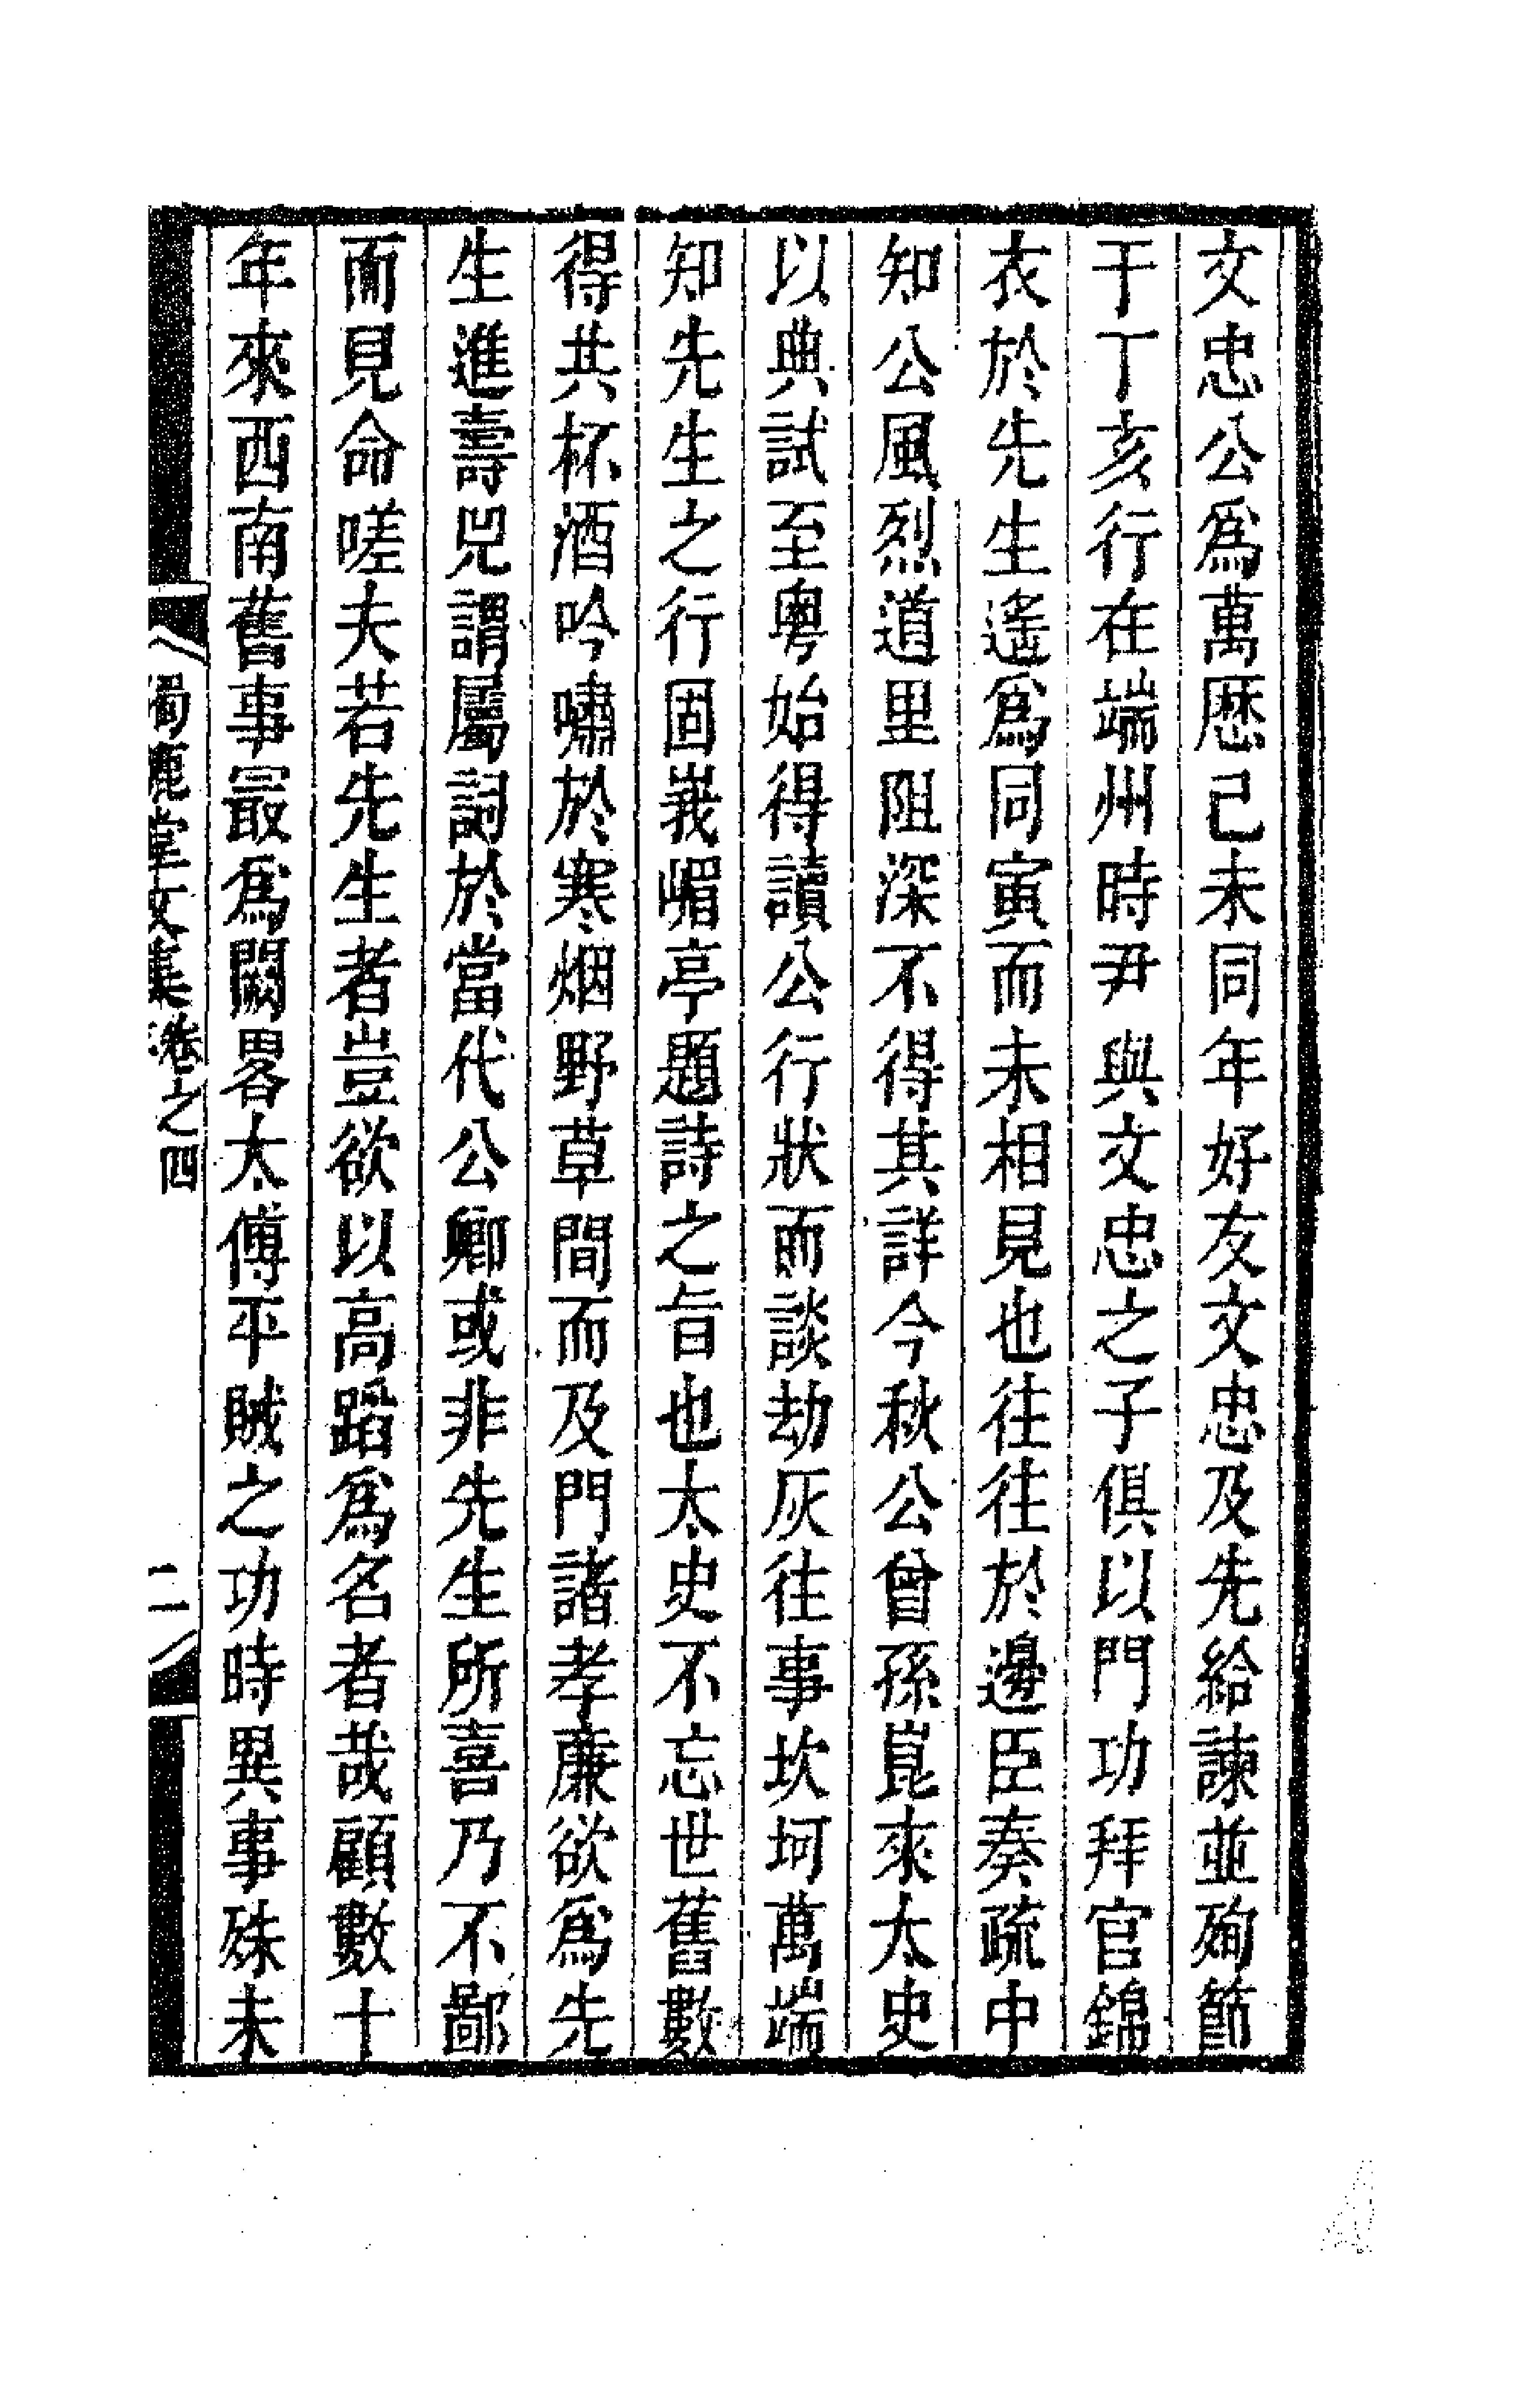 文忠公爲萬歷己未同年好友文忠及先給諫並殉節
于丁亥行在端州時尹與文忠之子俱以門功拜官錦
衣於先生遙爲同寅而未相見也往往於邊臣奏疏中
知公風烈道里阻深不得其詳今秋公曾孫崑來太史
以典試至粤始得讀公行狀而談劫灰往事坎坷萬端
知先生之行固峩嵋亭題詩之旨也太史不忘世舊數
得共杯酒吟嘯於寒烟野草間而及門諸孝廉欲爲先
生進壽兕謂屬詞於當代公卿或非先生所喜乃不鄙
而見命嗟夫若先生者豈欲以高蹈爲名者哉顧數十
年來西南舊事最爲闕畧太傅平賊之功時異事殊未
獨漉堂文集卷之四 二